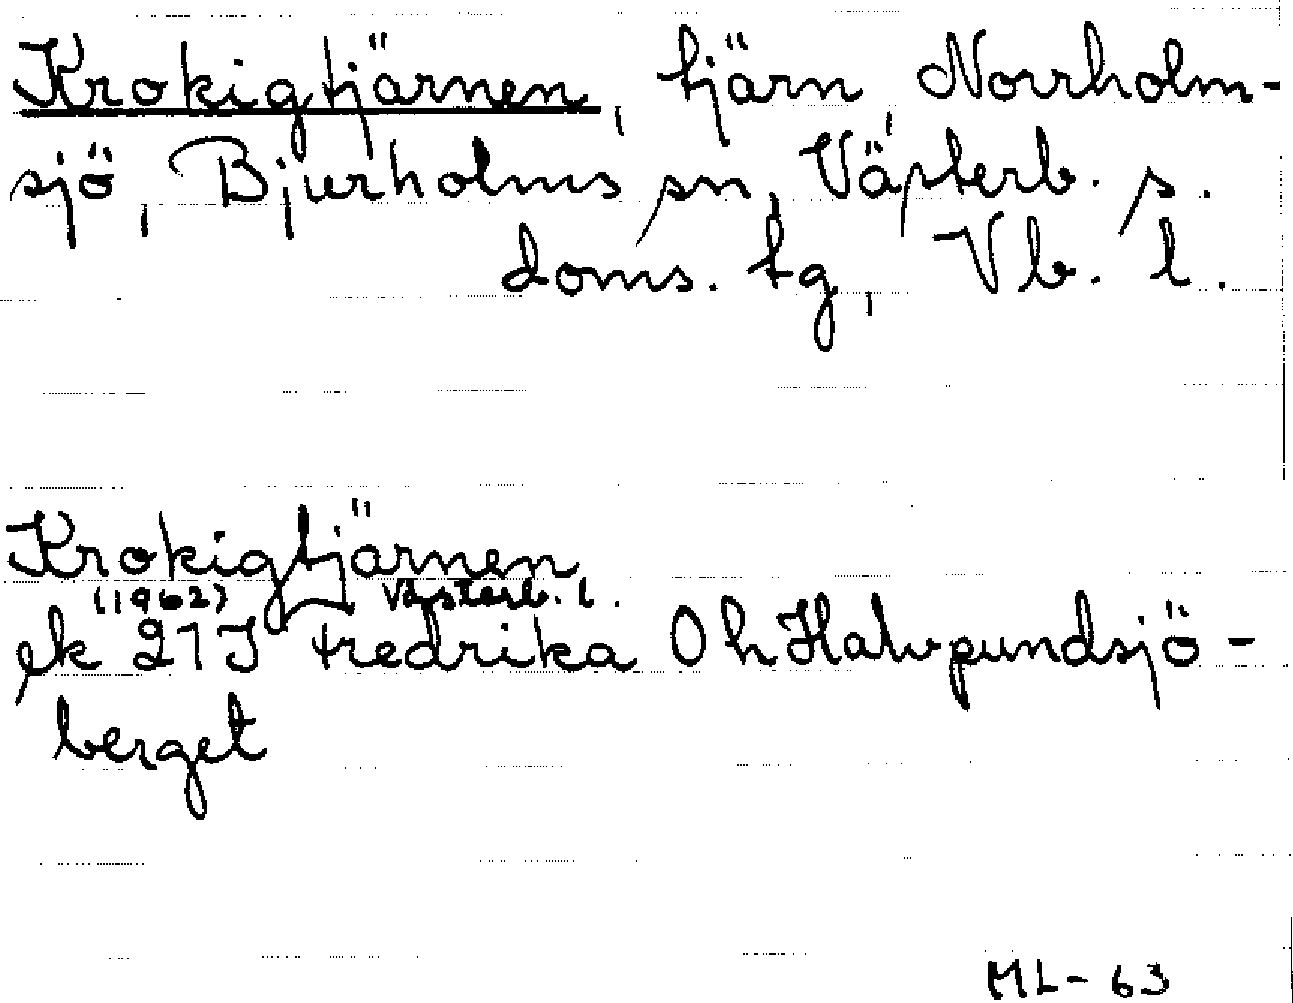 Krokigtjärnen, tjärn, Norrholm-
sjö, Bjurholms sn, Västerb. s.
doms. tg, Vb. l.
Krokigtjärnen,
(1962) Västerb. l.
ek 21J Fredrika Oh Halvpundsjö-
berget
ML-63